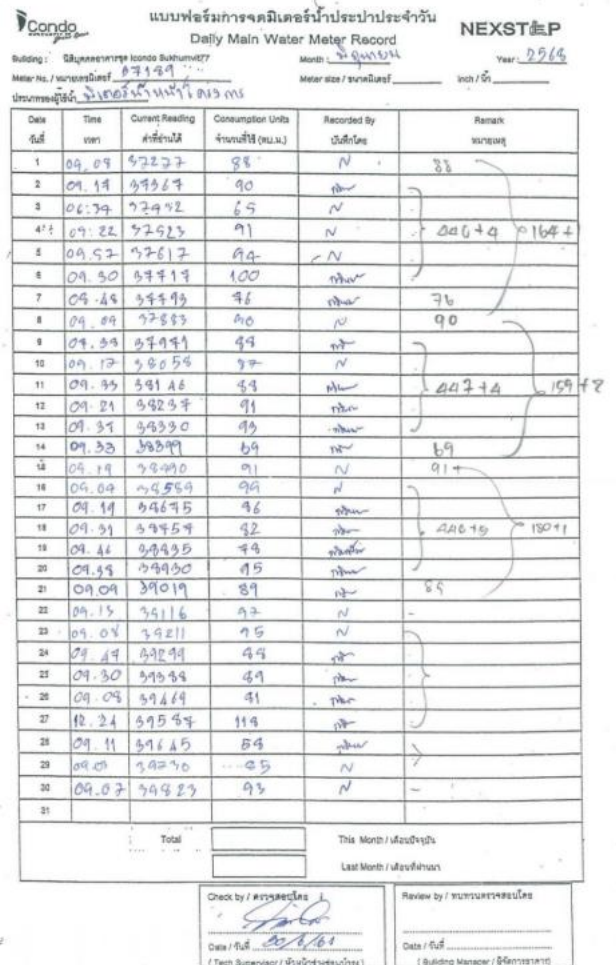 iCondo
แบบฟอร์มการจดมิเตอร์น้ำประปาประจำวัน
Daily Main Water Meter Record
NEXSTEP
Building : นิติบุคคลอาคารชุด Icondo Sukhumvit77 Month : มิถุนายน Year : 2568
Meter No. / หมายเลขมิเตอร์ 07189 Meter size / ขนาดมิเตอร์ inch / นิ้ว
ประเภทของผู้ใช้น้ำ มิเตอร์น้ำหน้าโครงการ
Date Time Current Reading Consumption Units Recorded By Remark
วันที่ เวลา ค่าที่อ่านได้ จำนวนที่ใช้ (ลบ.ม.) บันทึกโดย หมายเหตุ
1 09.08 37277 88 N 88
2 09.14 37367 90
3 06:34 37432 65 N
4 09:22 37523 91 N 446+4 164+
5 09.52 37617 94 N
6 09.30 37717 100
7 09.48 37793 76 76
8 09.09 37883 90 N 90
9 09.39 37971 88
10 09.17 38058 87 N
11 09.33 38146 88 447+4 159+2
12 09.21 38237 91
13 09.37 38330 93
14 09.33 38399 69 69
15 09.19 38490 91 N 91+
16 09.04 38589 99 N
17 09.19 38675 86
18 09.31 38757 82 180+1
19 09.46 38835 78
20 09.38 38930 95
21 09.09 39019 89 89
22 09.13 39116 97 N -
23 09.08 39211 95 N
24 09.47 39299 88
25 09.30 39388 89
26 09.08 39469 81
27 12.24 39587 118
28 09.11 39645 58
29 39730 85 N
30 09.07 39823 93 N -
31
Total This Month / เดือนปัจจุบัน
Last Month / เดือนที่ผ่านมา
Check by / ตรวจสอบโดย Review by / ทบทวนตรวจสอบโดย
Date / วันที่ Date / วันที่
( Tech Supervisor / หัวหน้าช่างซ่อมบำรุง ) ( Building Manager / ผู้จัดการอาคาร)